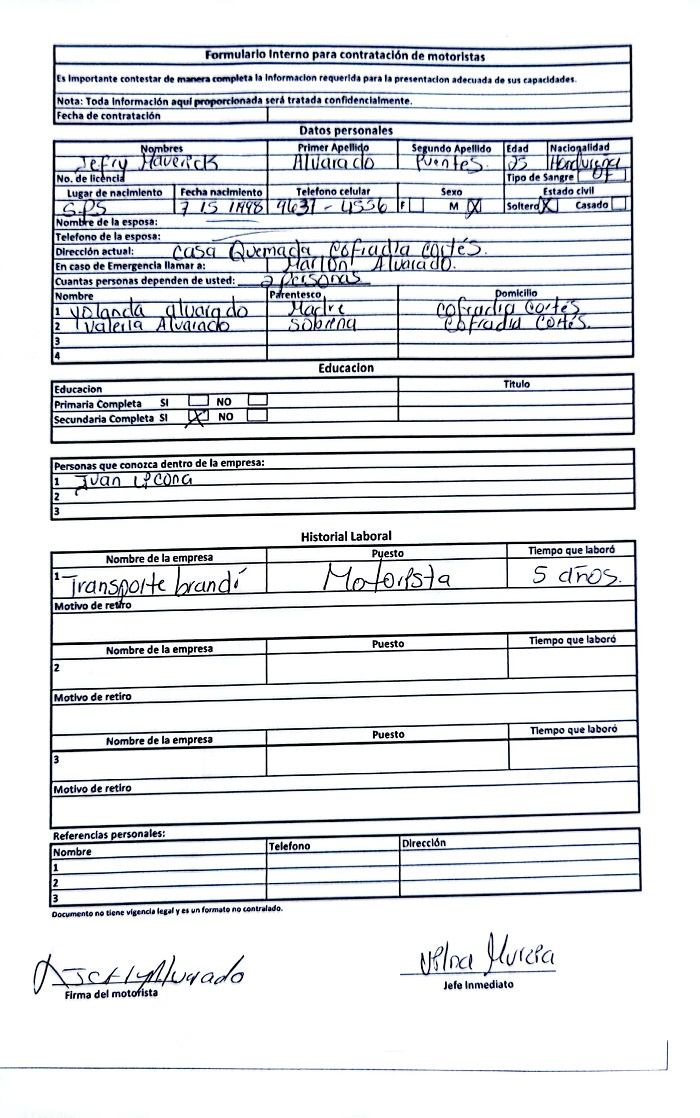 Formulario Interno para contratación de motoristas
Es Importante contestar de manera completa la Informacion requerida para la presentacion adecuada de sus capacidades.
Nota: Toda Información aquí proporcionada será tratada confidencialmente.
Fecha de contratación
Datos personales
Nombres Primer Apellido Segundo Apellido Edad Nacionalidad
Jefry Maverick Alvarado Puentes. 25 Hondureña
No. de licencia Tipo de Sangre
Lugar de nacimiento Fecha nacimiento Telefono celular Sexo Estado civil
S.PS 7 15 1998 9637 - 4556 F M X Soltero X Casado
Nombre de la esposa:
Telefono de la esposa:
Dirección actual: Casa Quemada Cofradia Cortés.
En caso de Emergencia llamar a: Marlon Alvarado.
Cuantas personas dependen de usted: 2 personas
Nombre Parentesco Domicilio
1 yolanda alvarado Madre Cofradia Cortés
2 Valeria Alvarado Sobrina Cofradia Cortés.
3
4
Educacion
Educacion Titulo
Primaria Completa SI NO
Secundaria Completa SI X NO
Personas que conozca dentro de la empresa:
1 Juan Licona
2
3
Historial Laboral
Nombre de la empresa Puesto Tiempo que laboró
1 Transporte brandi Motorista 5 años.
Motivo de retiro
Nombre de la empresa Puesto Tiempo que laboró
2
Motivo de retiro
Nombre de la empresa Puesto Tiempo que laboró
3
Motivo de retiro
Referencias personales:
Nombre Telefono Dirección
1
2
3
Documento no tiene vigencia legal y es un formato no contralado.
Jefry Alvarado
Firma del motorista Jefe Inmediato